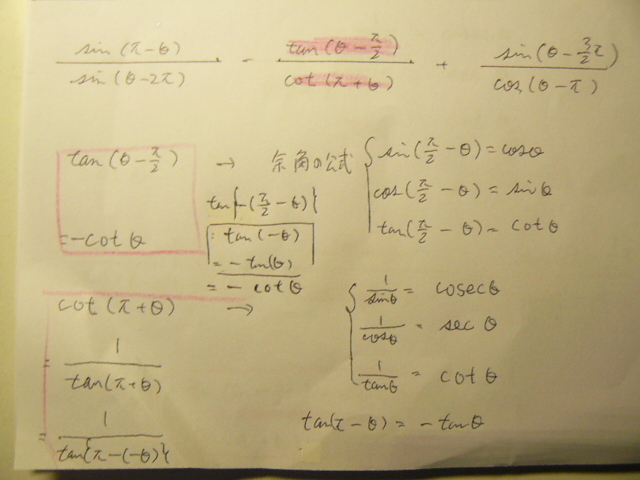 sin(π-θ)/sin(θ-2π) - tan(θ-π/2)/cot(π+θ) + sin(θ-3/2π)/cos(θ-π)
tan(θ-π/2) → 余角の公式
= -cot θ
tan{-(π/2-θ)}
= tan(-θ)
= -tan(θ)
= - cot θ
sin(π/2-θ) = cosθ
cos(π/2-θ) = sinθ
tan(π/2-θ) = cotθ
cot(π+θ) →
= 1/tan(π+θ)
= 1/tan{π-(-θ)}
1/sinθ = cosecθ
1/cosθ = sec θ
1/tanθ = cot θ
tan(π-θ) = -tanθ